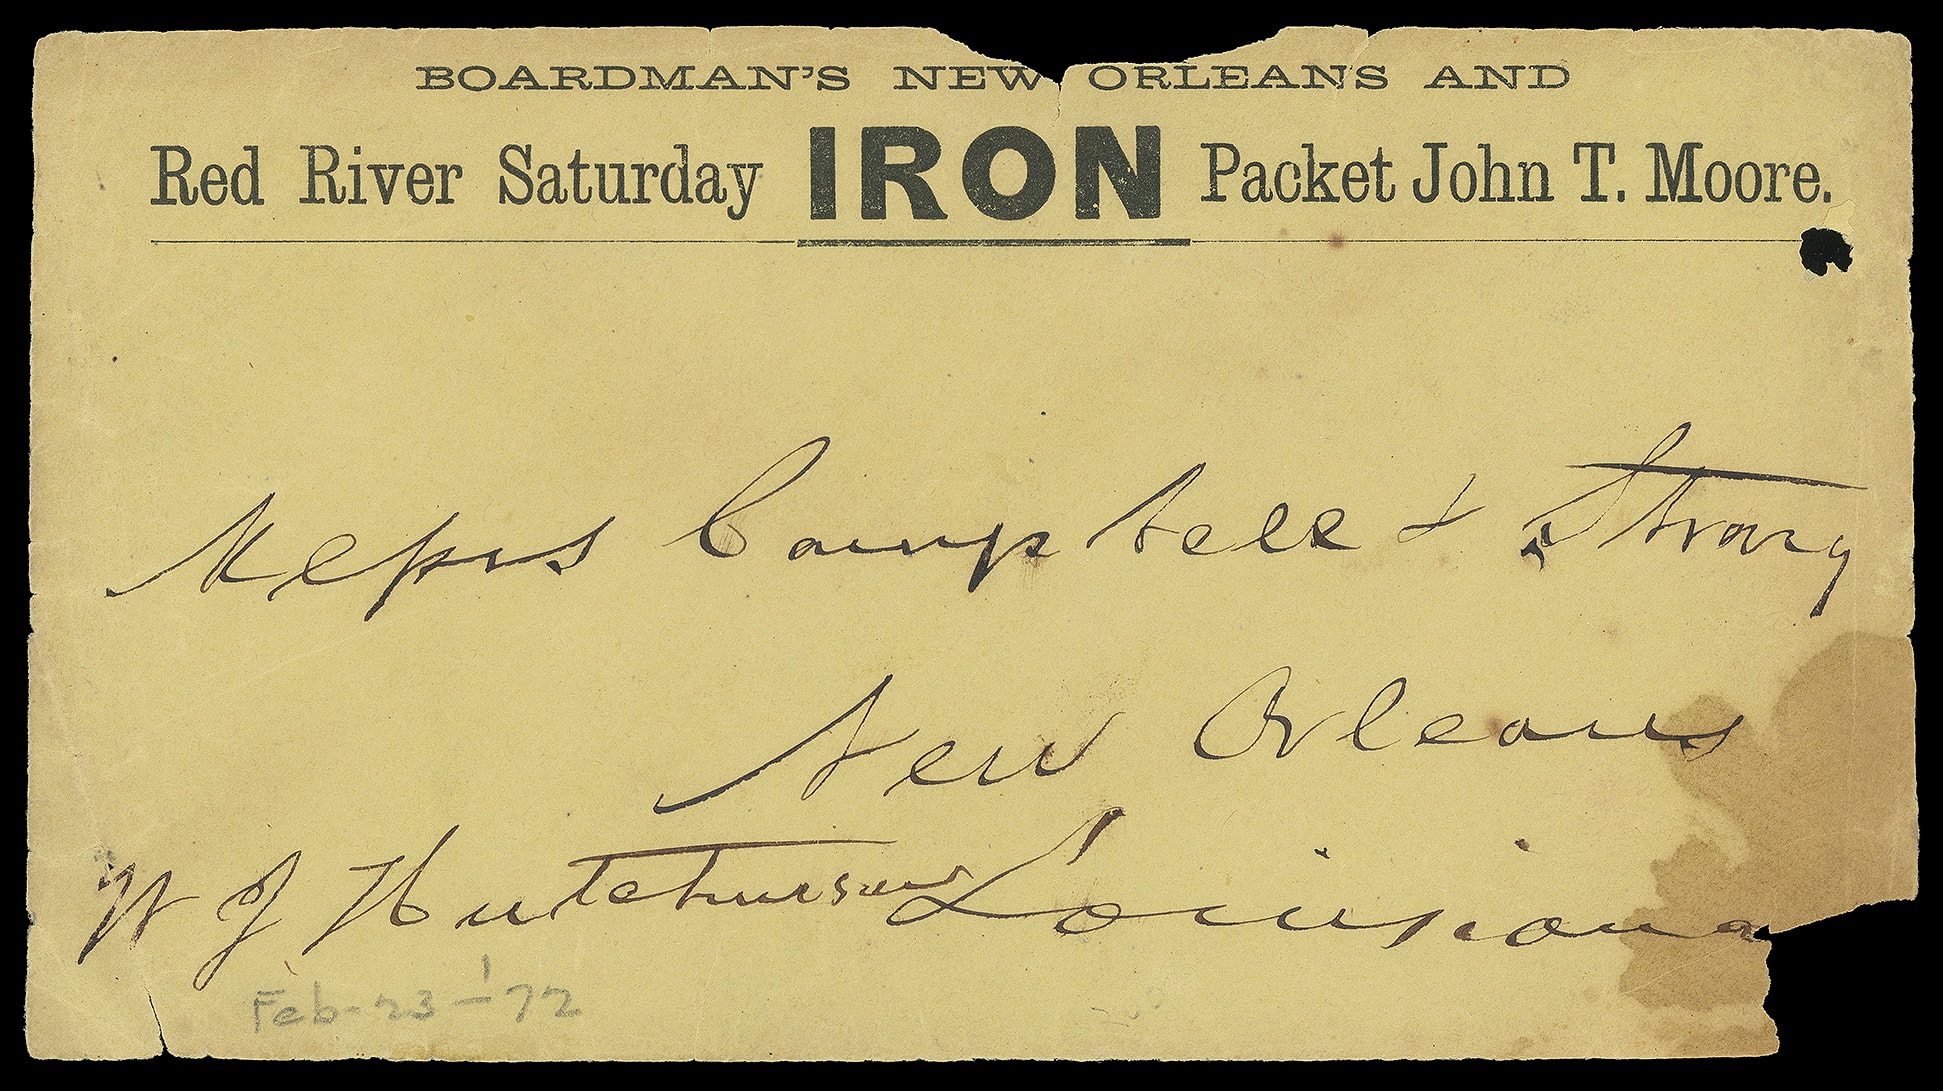 BOARDMAN'S NEW ORLEANS AND
Red River Saturday IRON Packet John T. Moore.
Messrs Campbell & Strong
New Orleans
Louisiana
W J Hutchinson
Feb-23-'72